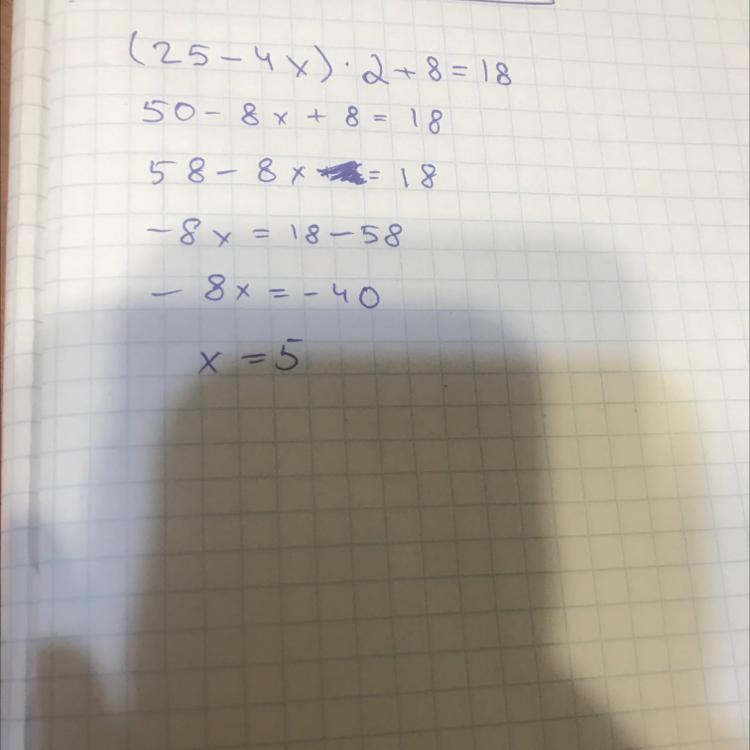 (25 - 4x) · 2 + 8 = 18
50 - 8x + 8 = 18
58 - 8x = 18
-8x = 18 - 58
- 8x = -40
x = 5